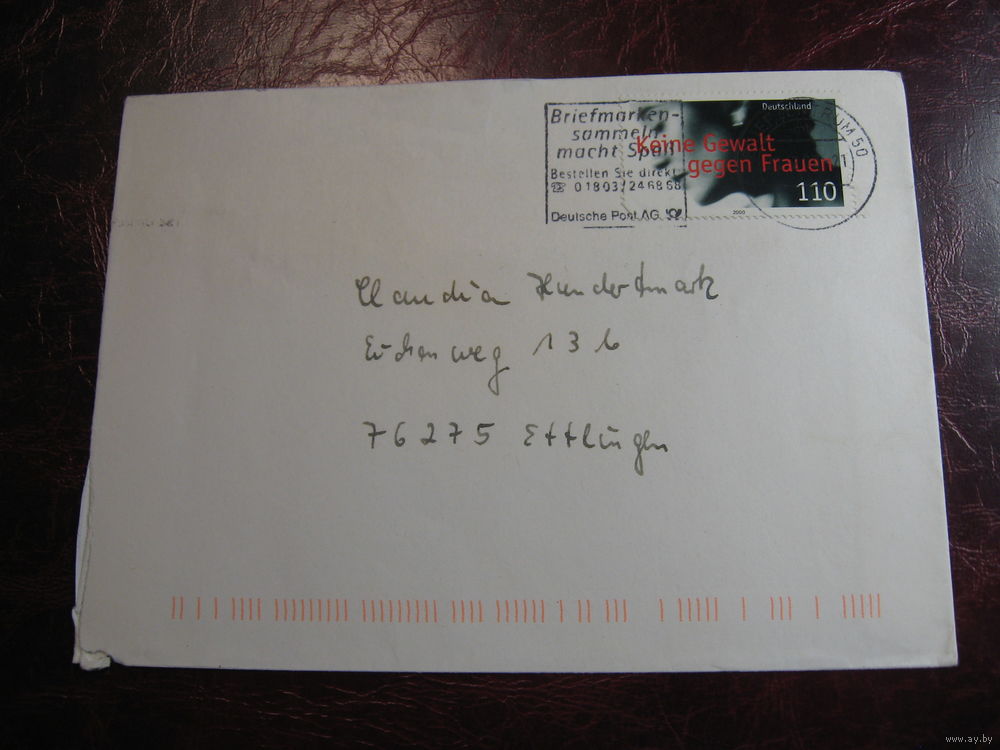 Briefmarken-
sammeln
macht Spaß
Bestellen Sie direkt
☏ 01803/246868
Deutsche Post AG
Deutschland
Keine Gewalt
gegen Frauen
110
2000
50
Claudia Hundertmark
76275 Ettlingen
www.ay.by